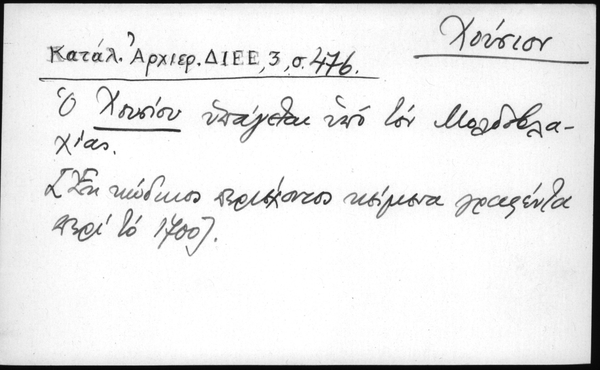 Χούσιον
Κατάλ. Ἀρχιερ. ΔΙΕΕ, 3, σ. 476.
Ὁ Χουσίου ὑπάγεται ὑπό τόν Μολδοβλα-
χίας.
[Ἐκ κώδικος περιέχοντος κείμενα γραφέντα
περί τό 1700].